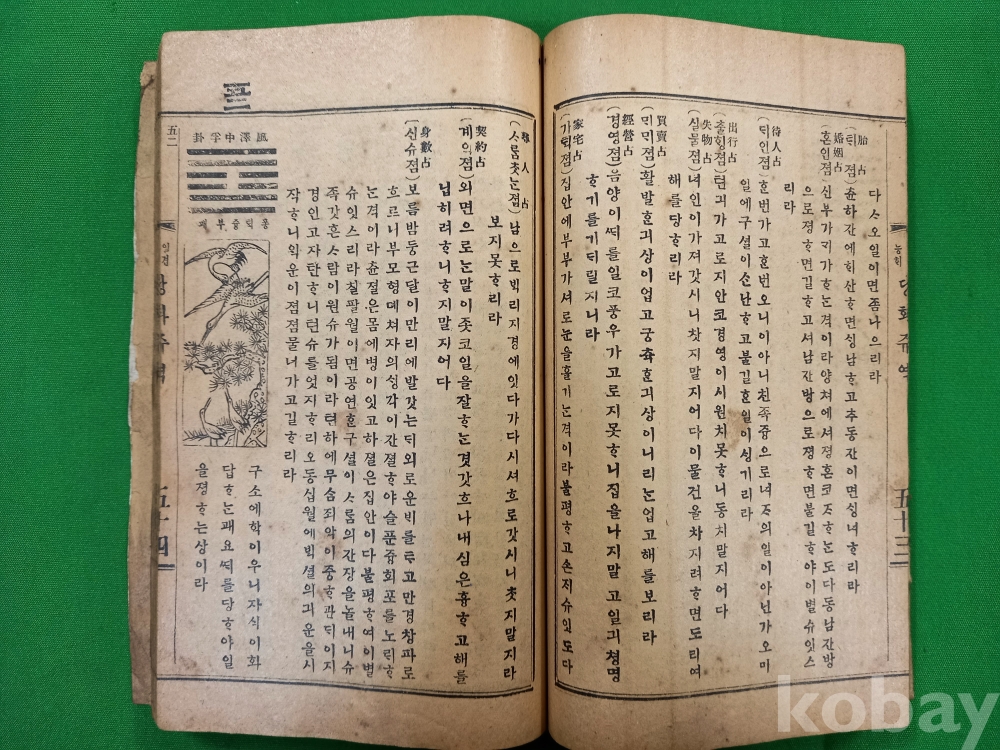 다ᄉᆞ오일이면쯤나으리라
胎占
(ᄐᆡ졈)츈하간에ᄒᆡ산ᄒᆞ면싱남ᄒᆞ고추동간이면싱녀ᄒᆞ리라
婚姻占
(혼인졈)신부가 가ᄒᆞᄂᆞᆫ격이라양쳐에셔졍혼코ᄌᆞᄒᆞᄂᆞᆫ도다동남간방
으로졍ᄒᆞ면길ᄒᆞ고셔남간방으로졍ᄒᆞ면불길ᄒᆞ야이별슈잇스
리라
待人占
(ᄃᆡ인졈)ᄒᆞᆫ번가고ᄒᆞᆫ번오니이아니친족즁으로녀ᄌᆞ의일이아닌가오미
일에구셜이소난ᄒᆞ고불길ᄒᆞᆫ일이싱기리라
出行占
(츌ᄒᆡᆼ졈) 가고로지안코경영이시원치못ᄒᆞ니동치말지어다
失物占
(실물졈)녀인이가져갓시니찻지말지어다이물건을차지려ᄒᆞ면도리여
해를당ᄒᆞ리라
買賣占
(ᄆᆡᄆᆡ졈)활발ᄒᆞᆫ긔상이업고궁츅ᄒᆞᆫ긔상이니리ᄂᆞᆫ업고해를보리라
經營占
(경영졈)음양이ᄯᅢ를일코풍우가고로지못ᄒᆞ니집을나지말고일긔쳥명
ᄒᆞ기를기ᄃᆡ릴지니라
家宅占
(가ᄐᆡᆨ졈)집안에부부가셔로눈을흘기ᄂᆞᆫ격이라불평ᄒᆞ고손지슈잇도다
당화쥬역
五十三
尋人占
(ᄉᆞᄅᆞᆷ찻ᄂᆞᆫ졈)남으로ᄇᆡᆨ리지경에잇다가다시셔흐로갓시니찻지말지라
보지못ᄒᆞ리라
契約占
(계약졈)외면으로ᄂᆞᆫ말이죳코일을잘ᄒᆞᄂᆞᆫ것갓흐나내심은흉ᄒᆞ고해를
닙히려ᄒᆞ니ᄒᆞ지말지어다
身數占
(신슈졈)보름밤둥근달이만리에발갓ᄂᆞᆫᄃᆡ외로운ᄇᆡ를ᄐᆞ고만경창파로
흐르니부모형뎨쳐자의싱각이간졀ᄒᆞ야슬푼즁회포를노릭ᄒᆞ
ᄂᆞᆫ격이라츈졀은몸에병이잇고하졀은집안이다불평ᄒᆞ여이별
슈잇스리라칠팔월이면공연ᄒᆞᆫ구셜이ᄉᆞᄅᆞᆷ의간장을놀내니슈
족갓흔ᄉᆞᄅᆞᆷ이원슈가됨이라 하에무숨죄악이즁ᄒᆞ관ᄃᆡ이지
경인고자탄ᄒᆞ니 슈를엇지ᄒᆞ리오동십월에ᄇᆡᆨ셜의긔운을시
작ᄒᆞ니악운이졈졈물너가고길ᄒᆞ리라
風澤中孚卦
구소에학이우니자식이화
답ᄒᆞᄂᆞᆫ패요ᄯᅢ를당ᄒᆞ야일
을졍ᄒᆞᄂᆞᆫ상이라
五二
당화쥬역
五十四
kobay